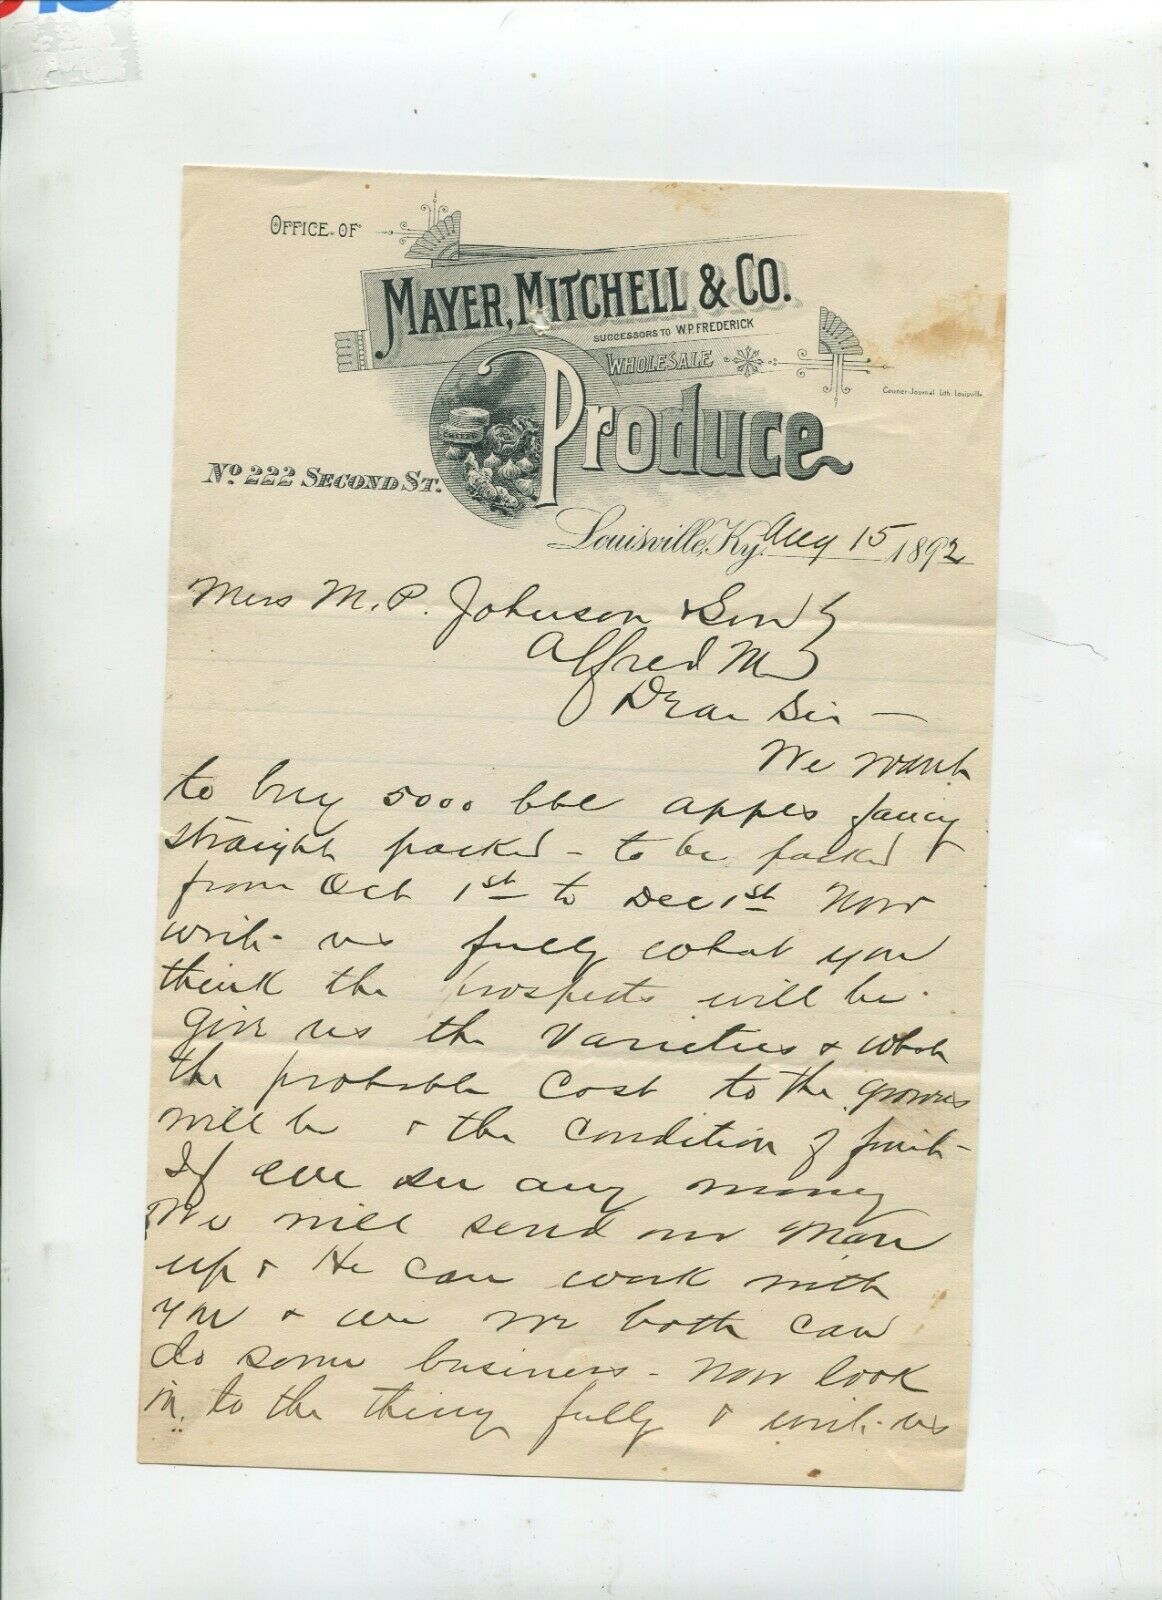 OFFICE OF
MAYER, MITCHELL & CO.
SUCCESSORS TO W.P. FREDERICK
WHOLESALE
Produce
Courier-Journal Lith. Louisville.
No 222 SECOND ST.
Louisville, Ky. Aug 15 1892
Mess M. P. Johnson & Son
Alfred
Dear Sir —
We want
to buy 5000 bbl apples fancy
straight packed - to be packed
from Oct 1st to Dec 1st Now
write us fully what you
think the prospects will be.
Give us the Varieties & what
the probable Cost to the growers
will be & the Condition of fruit -
If we see any money
We will send our Man
up & He can work with
you & we both can
do some business - Now look
in to the thing fully & write us